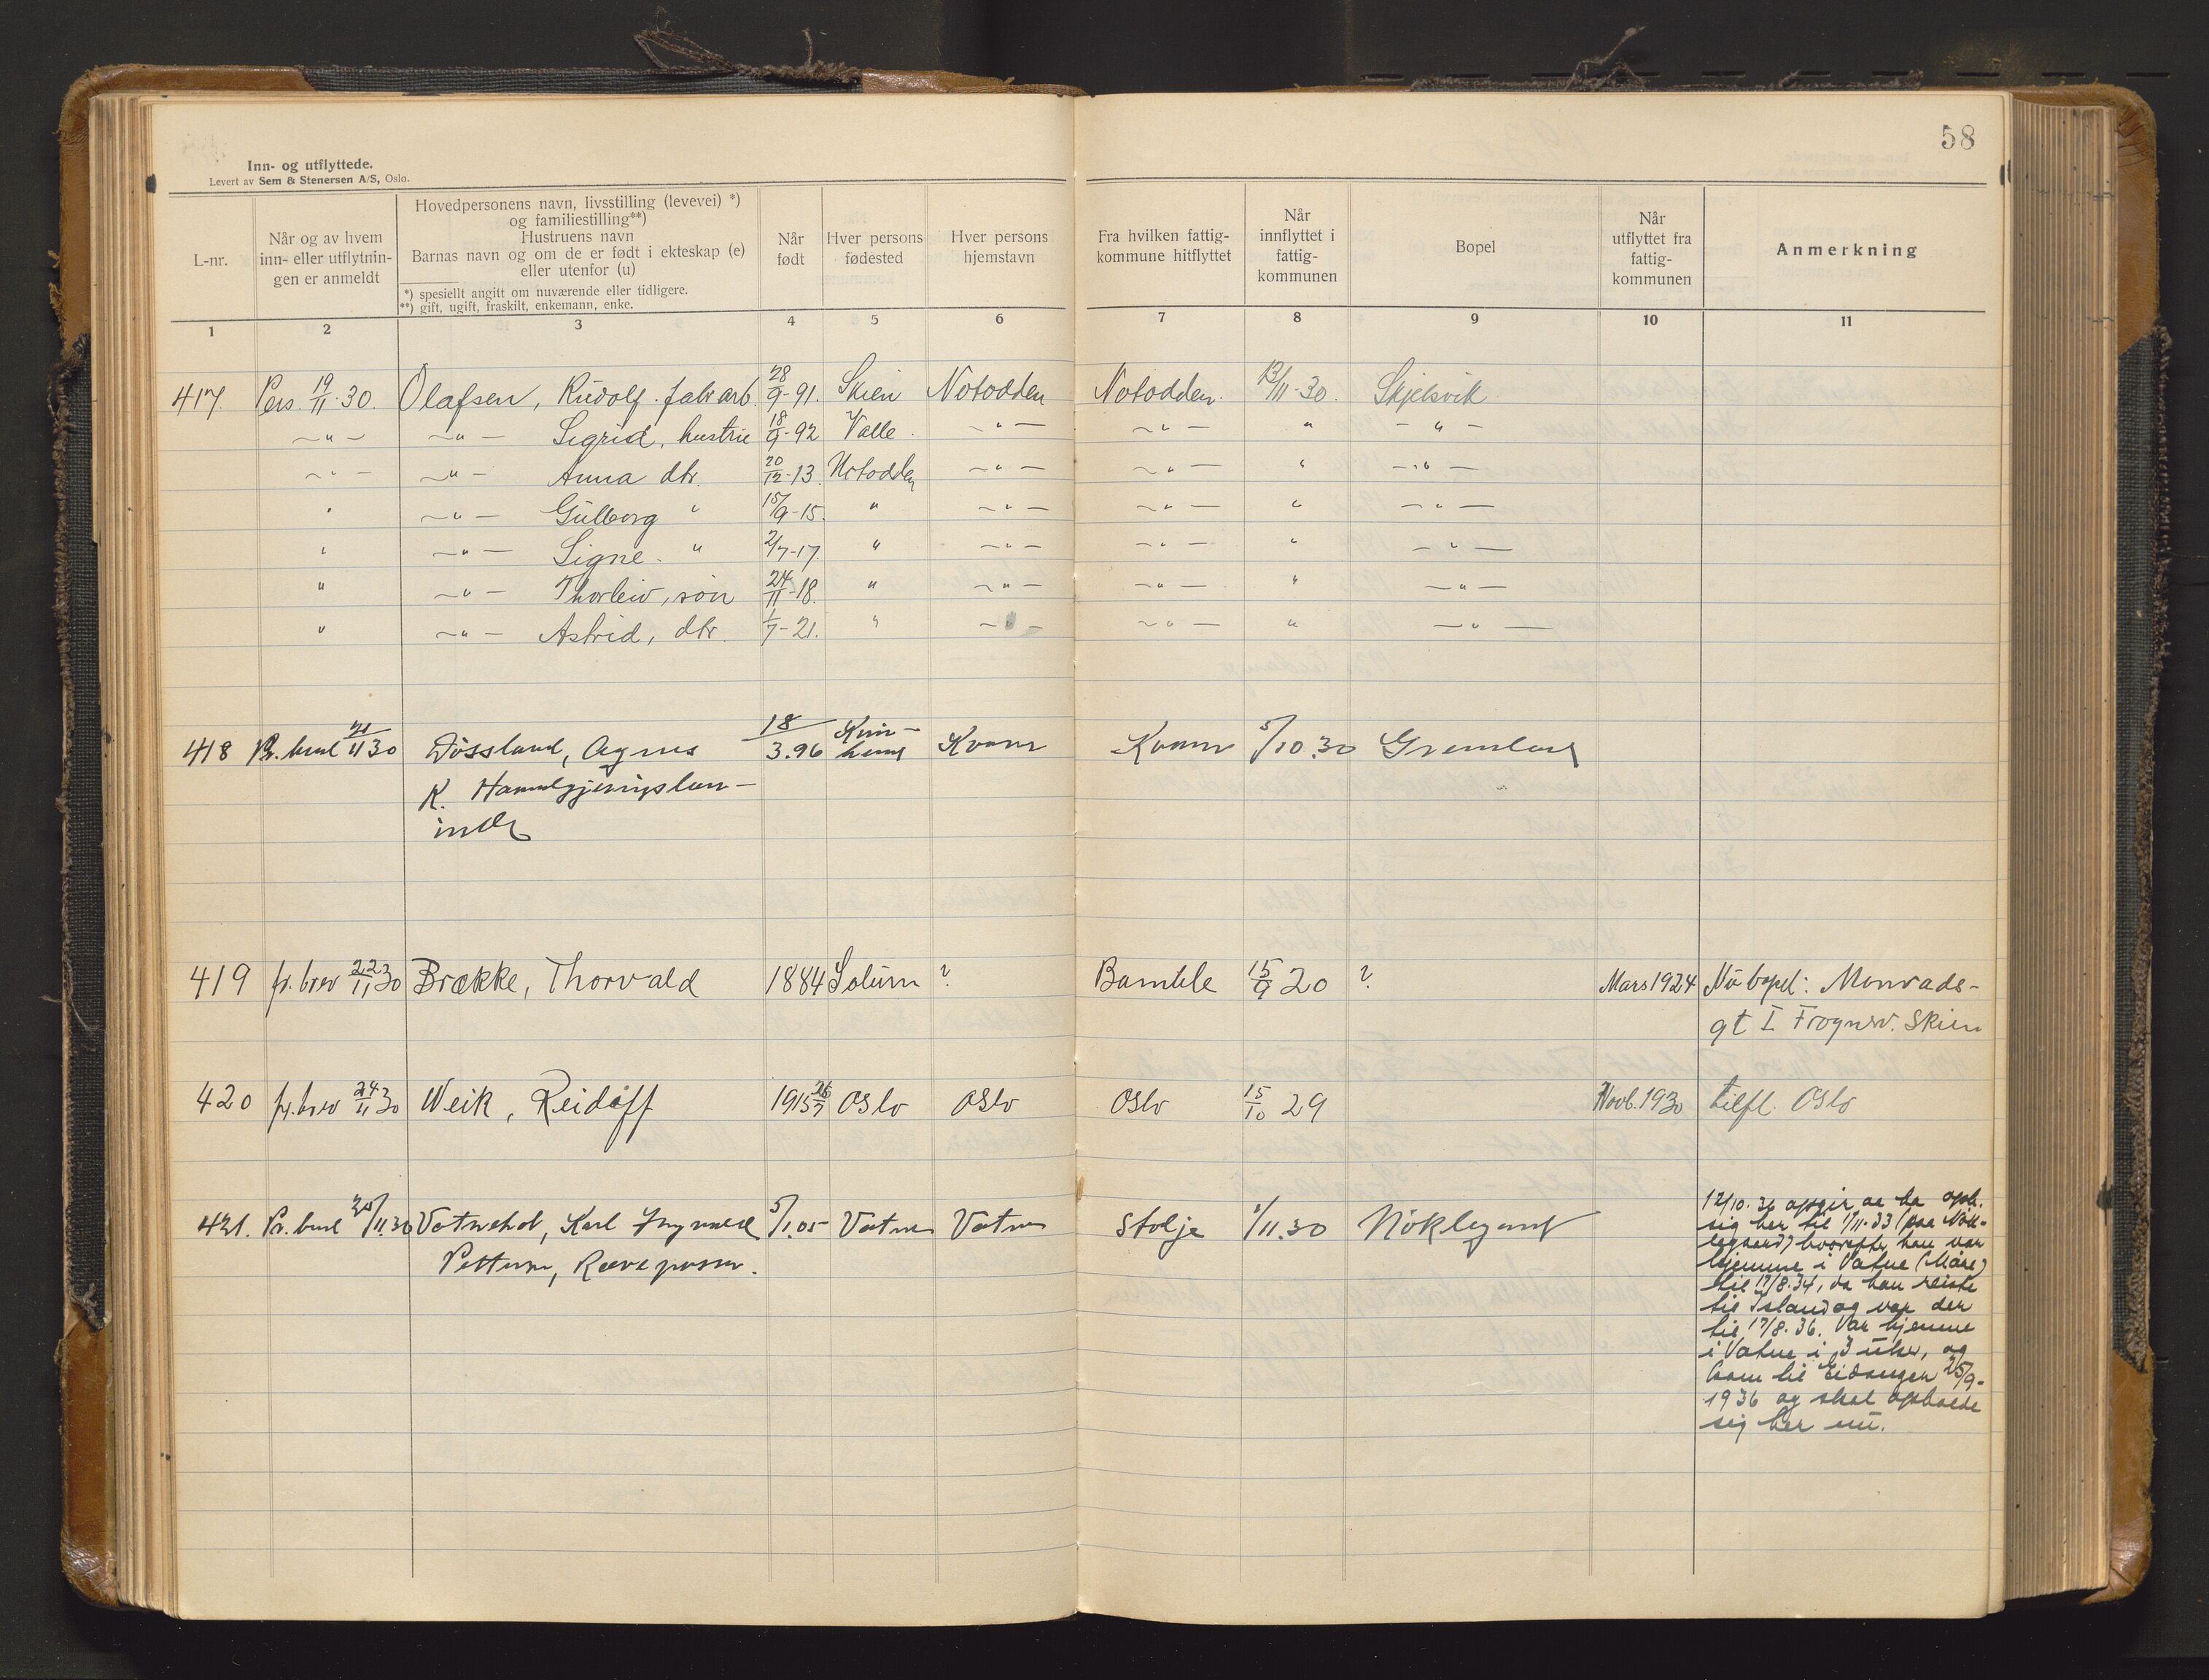 58
Inn- og utflyttede.
Levert av Sem & Stenersen A/S, Oslo.
L-nr.
Når og av hvem
inn- eller utflytnin-
gen er anmeldt
Hovedpersonens navn, livsstilling (levevei) *)
og familiestilling**)
Hustruens navn
Barnas navn og om de er født i ekteskap (e)
eller utenfor (u)
*) spesiellt angitt om nuværende eller tidligere.
**) gift, ugift, fraskilt, enkemann, enke.
Når
født
Hver persons
fødested
Hver persons
hjemstavn
Fra hvilken fattig-
kommune hitflyttet
Når
innflyttet i
fattig-
kommunen
Bopel
Når
utflyttet fra
fattig-
kommunen
Anmerkning
1 2 3 4 5 6 7 8 9 10 11
417. Pers. 19/11-30. Olafsen, Rudolf. fabr arb. 28/9-91. Skien Notodden Notodden. 13/11-30. Skjelsvik
-"- -"- Sigrid, hustru 18/9-92 Valle. -"- -"- " -"-
-"- -"- Anna dtr. 20/12-13. Notodden -"- -"- " -"-
" -"- Gulborg " 15/9-15. " -"- -"- " -"-
" -"- Signe. " 2/7-17. " -"- -"- " -"-
" -"- Thorleiv, søn 24/11-18. " -"- -"- " -"-
" -"- Astrid, dtr. 1/7-21. " -"- -"- " -"-
418 21/11 30 Døssland, Agnes 18/3.96 Kvin-
herad Kvam Kvam 5/10.30 Grenland
K.
419 pr. brev 22/11 30 Brække, Thorvald 1884 Solum ? Bamble 15/9 20 ? Mars 1924 Nu bopel: Monrads-
gt I Frognerv. Skien
420 pr. brev 24/11 30 Weik, Reidolff 1915 26/7 Oslo Oslo Oslo 15/10 29 Novb. 1930 tilfl. Oslo
421. 25/11.30 Vatnehol, Karl Ingvald 5/1.05 Vatne Vatne Stolje 1/11.30 Nøklegard
Pettersen, Revepasser.
12/10.36 opgir at ha oph.
sig her til 1/11-33 (paa Nök-
legaard) hvorefter han var
hjemme i Vatne (Møre)
til 17/8.34, da han reiste
til Island og var der
til 17/8.36. Var hjemme
i Vatne i 3 uker, og
kom til Eidanger 25/9-
1936 og skal opholde
sig her nu.